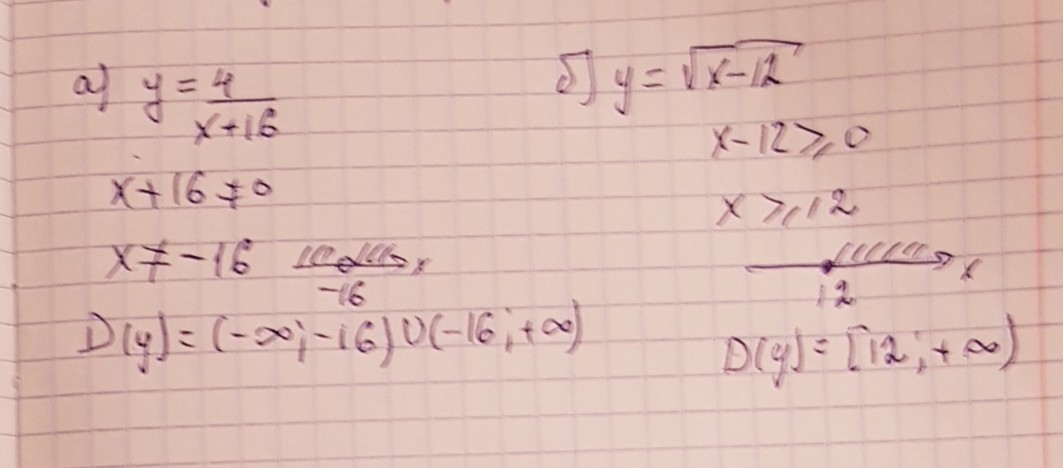 а) y = 4/(x+16)
x+16≠0
x≠-16
-16 x
D(y)=(-∞;-16)∪(-16;+∞)
б) y = √(x-12)
x-12⩾0
x⩾12
12 x
D(y)=[12;+∞)